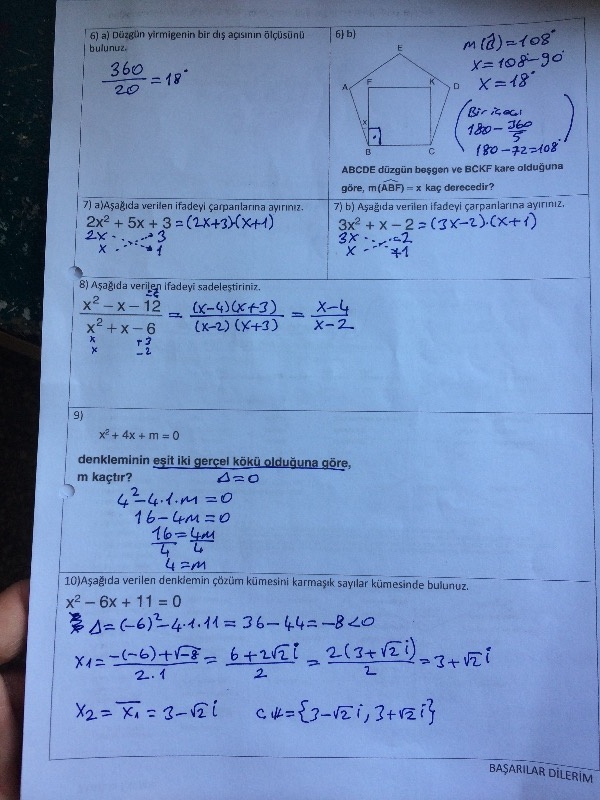 6) a) Düzgün yirmigenin bir dış açısının ölçüsünü
bulunuz.
360/20 = 18°
6) b)
E
A
F
K
D
x
B
C
m(B̂) = 108°
x = 108° - 90°
x = 18°
(Bir iç açı
180 - 360/5
180 - 72 = 108°)
ABCDE düzgün beşgen ve BCKF kare olduğuna
göre, m(ABF) = x kaç derecedir?
7) a)Aşağıda verilen ifadeyi çarpanlarına ayırınız.
2x² + 5x + 3 = (2x+3)·(x+1)
2x 3
x 1
7) b) Aşağıda verilen ifadeyi çarpanlarına ayırınız.
3x² + x - 2 = (3x-2)·(x+1)
3x -2
x +1
8) Aşağıda verilen ifadeyi sadeleştiriniz.
(x² - x - 12)/(x² + x - 6) = (x-4)(x+3)/(x-2)(x+3) = (x-4)/(x-2)
x +3
x -2
9)
x² + 4x + m = 0
denkleminin eşit iki gerçel kökü olduğuna göre,
m kaçtır?
Δ = 0
4² - 4·1·m = 0
16 - 4m = 0
16/4 = 4m/4
4 = m
10)Aşağıda verilen denklemin çözüm kümesini karmaşık sayılar kümesinde bulunuz.
x² - 6x + 11 = 0
Δ = (-6)² - 4·1·11 = 36 - 44 = -8 < 0
x1 = (-(-6) + √-8)/2·1 = (6 + 2√2 i)/2 = 2(3 + √2 i)/2 = 3 + √2 i
x2 = x̄1 = 3 - √2 i Ç.K = {3 - √2 i, 3 + √2 i}
BAŞARILAR DİLERİM